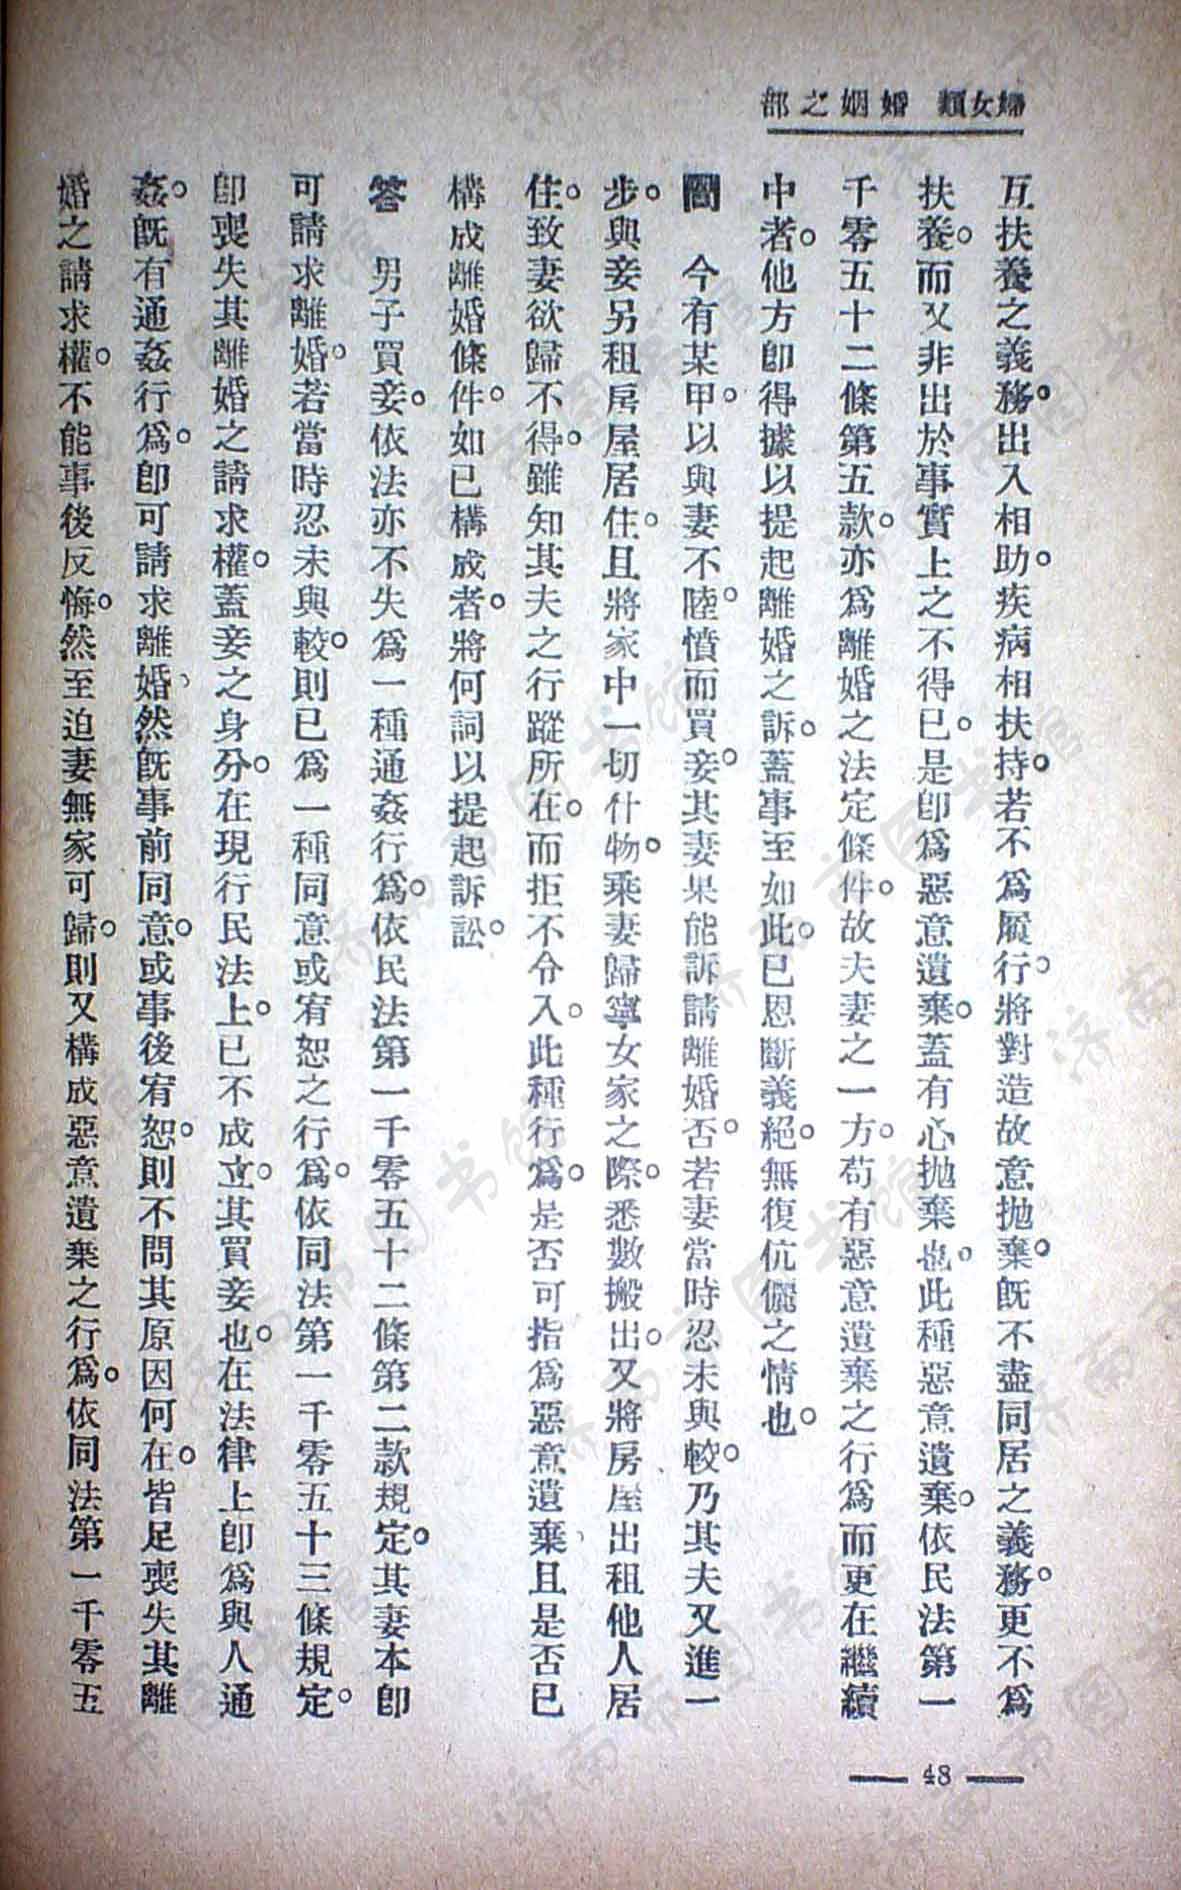 婦女類　婚姻之部
互扶養之義務。出入相助。疾病相扶持。若不爲履行。將對造故意拋棄。旣不盡同居之義務。更不爲
扶養。而又非出於事實上之不得已。是卽爲惡意遺棄。蓋有心拋棄也。此種惡意遺棄。依民法第一
千零五十二條第五款。亦爲離婚之法定條件。故夫妻之一方。苟有惡意遺棄之行爲而更在繼續
中者。他方卽得據以提起離婚之訴。蓋事至如此。已恩斷義絕。無復伉儷之情也。
問　今有某甲。以與妻不睦。憤而買妾。其妻果能訴請離婚否。若妻當時忍未與較。乃其夫又進一
步。與妾另租房屋居住。且將家中一切什物。乘妻歸寧女家之際。悉數搬出。又將房屋出租他人居
住。致妻欲歸不得。雖知其夫之行蹤所在。而拒不令入。此種行爲。是否可指爲惡意遺棄、且是否已
構成離婚條件。如已構成者。將何詞以提起訴訟。
答　男子買妾。依法亦不失爲一種通姦行爲。依民法第一千零五十二條第二款規定。其妻本卽
可請求離婚。若當時忍未與較。則已爲一種同意或宥恕之行爲。依同法第一千零五十三條規定。
卽喪失其離婚之請求權。蓋妾之身分。在現行民法上。已不成立。其買妾也。在法律上卽爲與人通
姦。旣有通姦行爲。卽可請求離婚、然旣事前同意。或事後宥恕。則不問其原因何在。皆足喪失其離
婚之請求權。不能事後反悔。然至迫妻無家可歸。則又構成惡意遺棄之行爲。依同法第一千零五
48
济南市图书馆